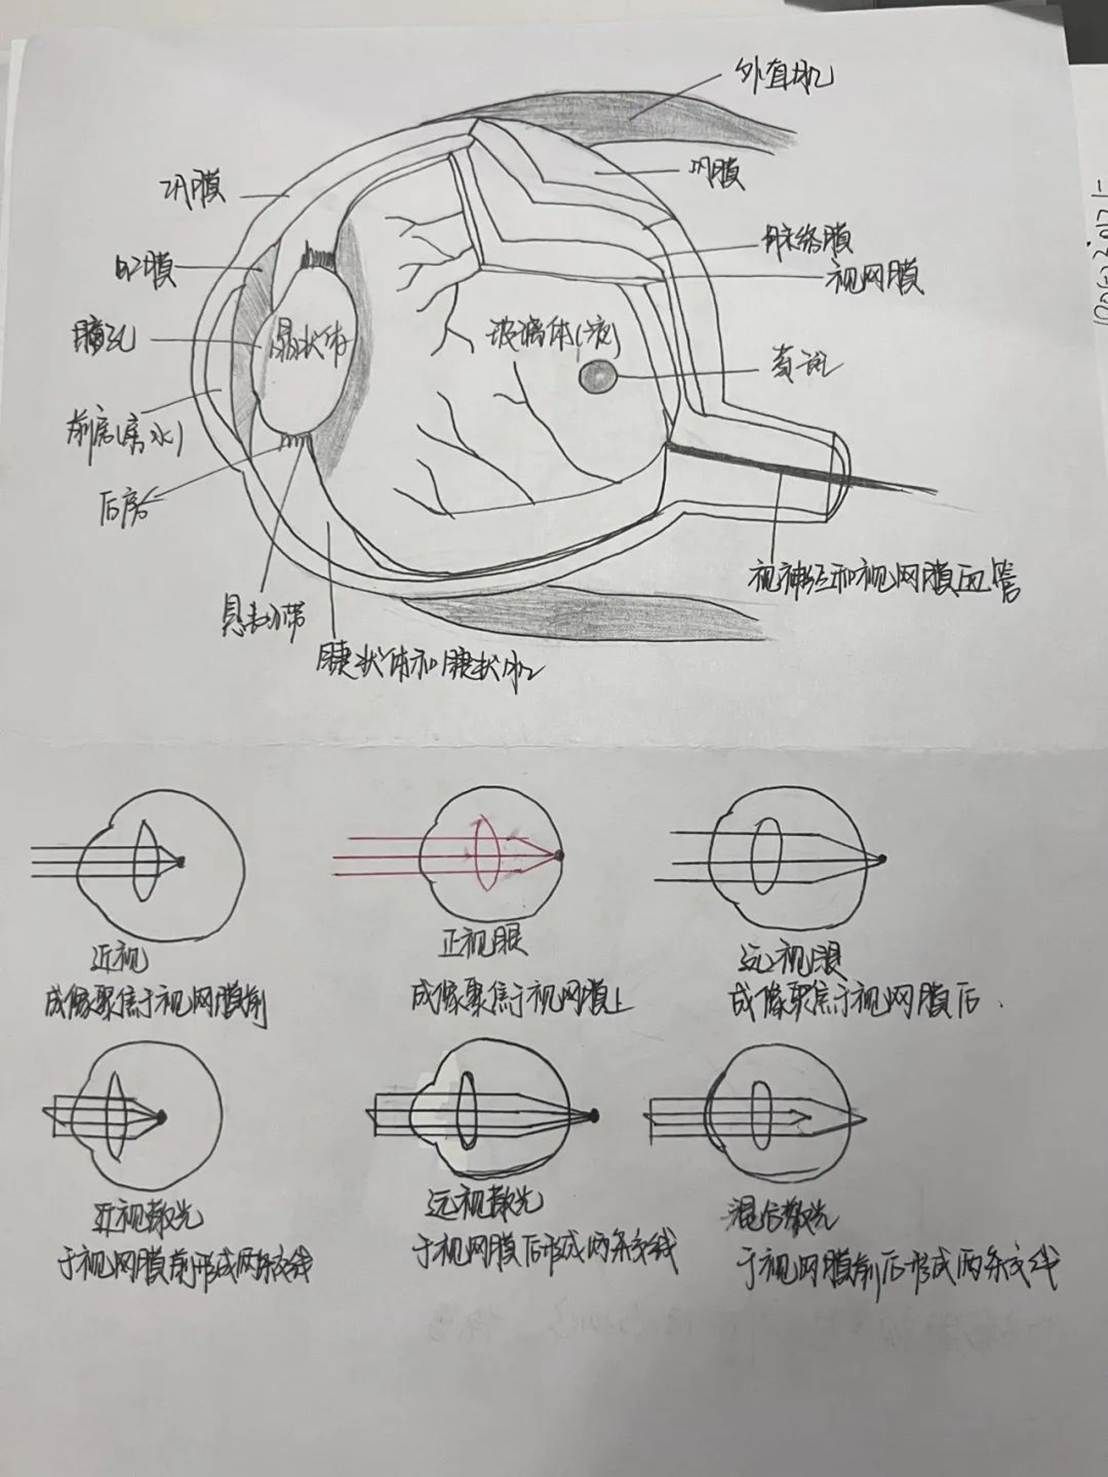 外直肌
巩膜
巩膜
脉络膜
虹膜
视网膜
瞳孔
晶状体
玻璃体(液)
黄斑
前房(房水)
后房
视神经和视网膜血管
悬韧带
睫状体和睫状肌
近视
成像聚焦于视网膜前
正视眼
成像聚焦于视网膜上
远视眼
成像聚焦于视网膜后.
近视散光
于视网膜前形成两条交线
远视散光
于视网膜后形成两条交线
混合散光
于视网膜前后形成两条交线